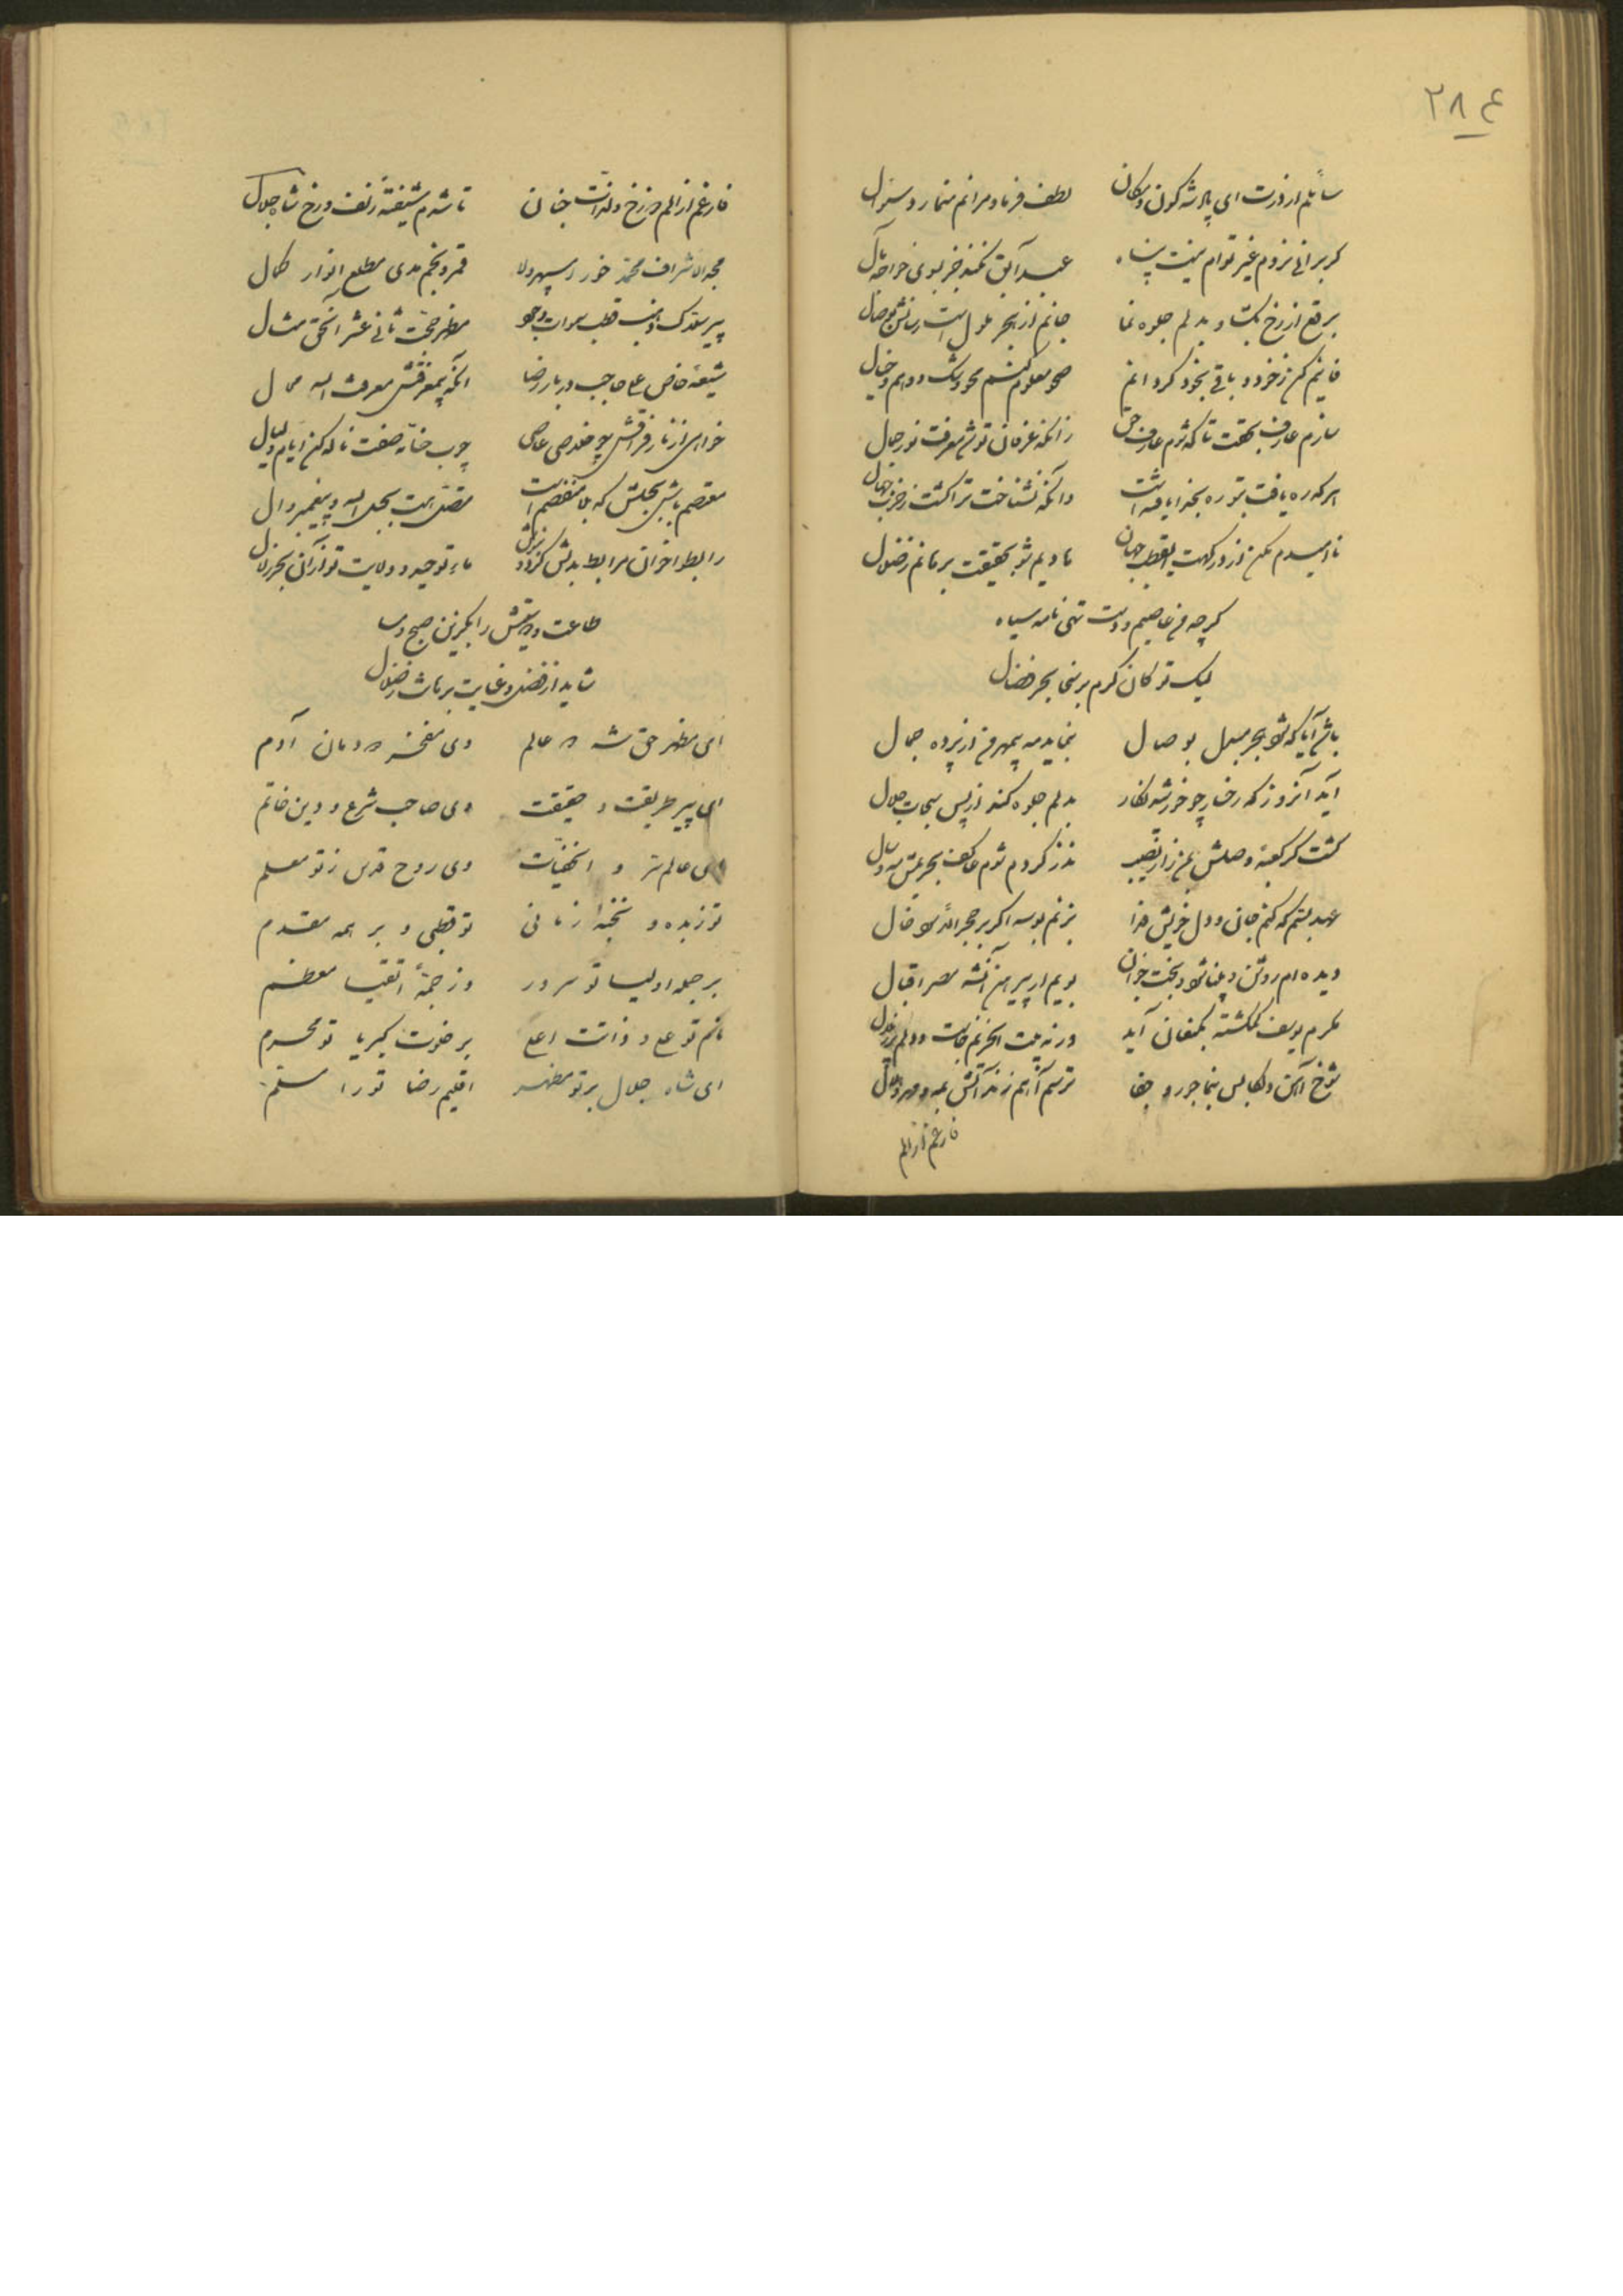 ۲۸۴
سائلم از درت ای پادشه کون و مکان لطف فرما و مرانم منما رد سئوال
گر برانی نروم غیر توام نیست پناه عبد آبق نکند جز بسوی خواجه مآل
برقع از رخ بگشا و بدلم جلوه نما جانم از هجر ملول است رسانش بوصال
فانیم کن ز خود و باقی بخود گردانم صحو معلوم کنم محو شک و وهم و خیال
سازم عارف بحقت تا که شوم عارف حق زانکه عرفان تو شد معرفت نور جمال
هر که ره یافت بتو ره بخدا یافته است وانکه نشناخت ترا گشت ز حزب جهال
ناامیدم مکن از درگهت ای قطب جهان هادیم شو بحقیقت برهانم ز ضلال
گر چه من عاصیم و دست تهی نامه سیاه
لیک تو کان کرم بر منی بحر فضال
باشد آیا که شود هجر مبدل بوصال بنماید مه بیمهر من از پرده جمال
آید آنروز که رخسار چو خورشید نگار بدلم جلوه کند از پس سبحات جلال
گشت گر کعبه وصلش بمن زار نصیب نذر کردم شوم عاکف بحریمش مه و سال
عهد بستم که کنم جان و دل خویش فدا بزنم بوسه اگر بر حجر الاسود خال
دیده ام روشن و بینا شود و بخت جوان بویم ار پیرهن آن شه مصر اقبال
بکرم یوسف گمگشته بکنعان آید ورنه بیت الحزنم جاست و دلم
شوخ آهن دل بس بنما جور و جفا ترسم آهم زند آتش بمه و مهر و
فارغم از الم
فارغم از الم دوزخ و لذات جنان تا شدم شیفته زلف و رخ شاه جلال
مجد الاشراف محمد خور سپهر ولا قمر و نجم هدی مطلع انوار کمال
پیر قطب سموات وجود مظهر حجت ثانی عشر آنحق مثال
شیعه خاص علی حاجب دربار رضا آنکه بی معرفتش معرفت الله محال
خواهی از نار فراقش چو خلاصی عاصی چوب حنانه صفت ناله کن ایام و لیال
معتصم باش بحبلش که بلا منفصم است متصل هست بحبل الله و پیغمبر و آل
ماء توحید و ولایت تو از آن بحر زلال
طاعت و را بگزین صبح و مسا
شاید از فضل و عنایت برهاند ز ضلال
ای مظهر حق شه دو عالم وی مفخر دودمان آدم
ای پیر طریقت و حقیقت وی صاحب شرع و دین خاتم
ای عالم سر و الخفیات وی روح قدس ز تو معلم
تو زبده و نخبه زمانی تو قطبی و بر همه مقدم
بر جمله اولیا تو سرور وز جمله اتقیا معظم
نام تو علی و ذاتت اعلی بر خلوت کبریا تو محرم
ای شاه جلال بر تو مظهر اقلیم رضا تو را مسلم